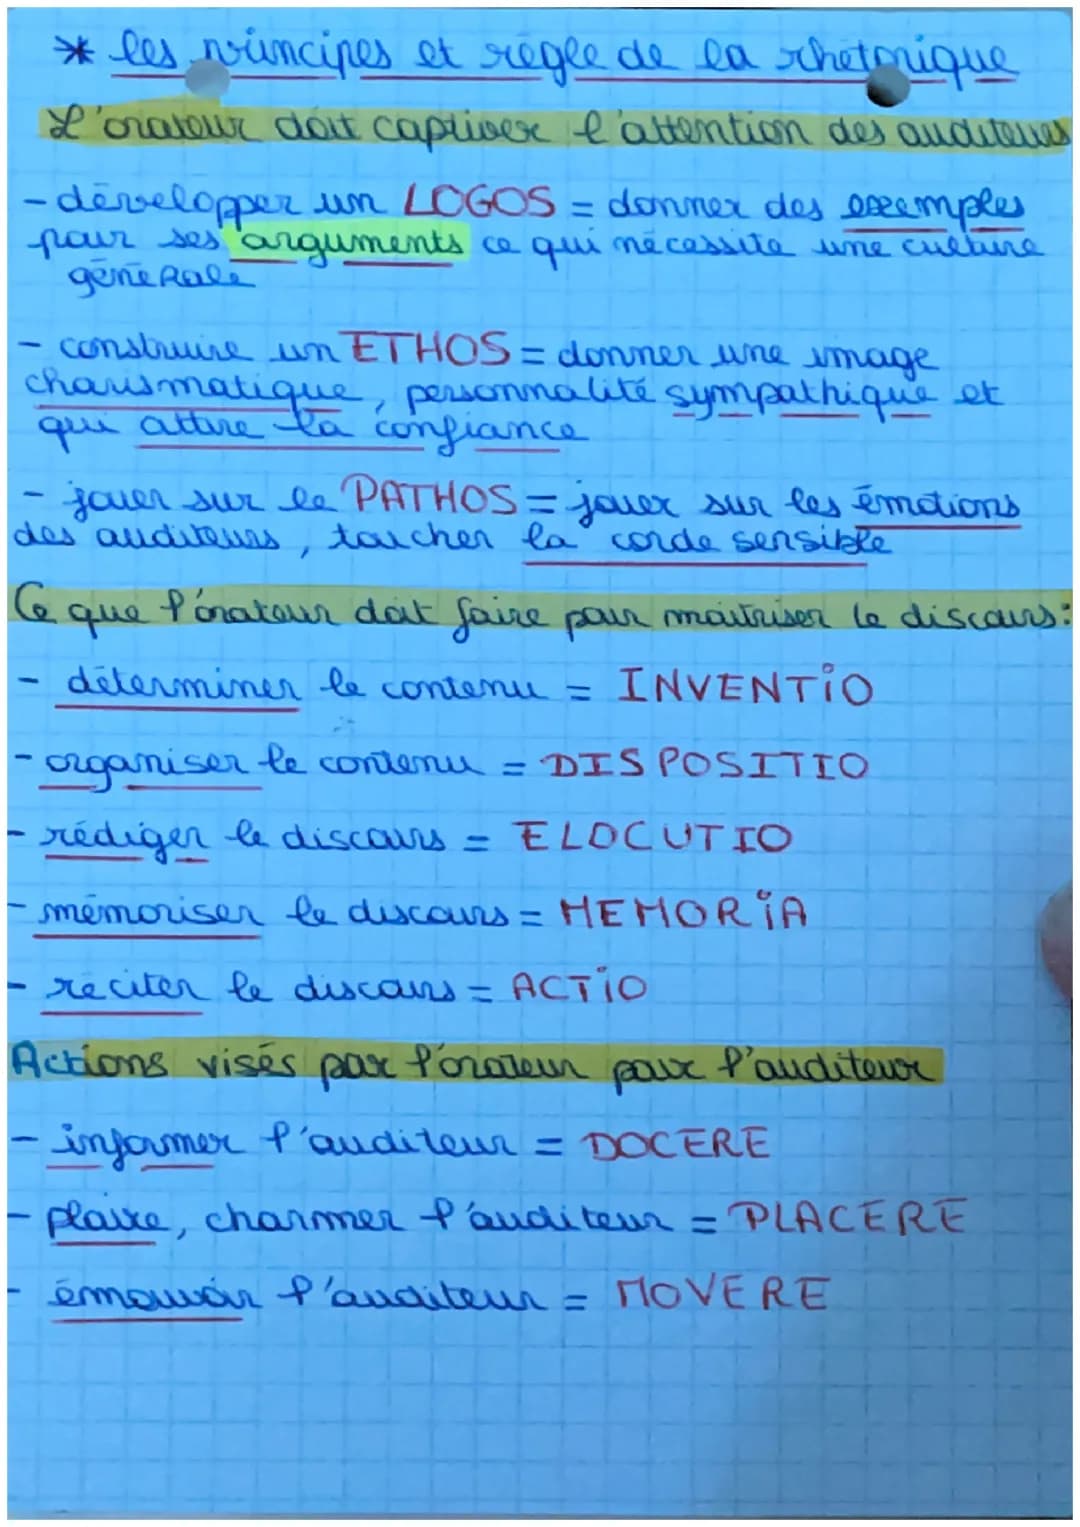 * les principes et règle de la rhétorique
L'orateur doit captiver l'attention des auditeurs
- développer un LOGOS = donner des exemples
pour ses arguments ce qui nécessite une culture
générale
- construire un ETHOS = donner une image
charismatique, personnalité sympathique et
qui attire la confiance
- jouer sur le PATHOS = jouer sur les émotions
des auditeurs, toucher la corde sensible
Ce que l'orateur doit faire pour maitriser le discours:
- déterminer le contenu = INVENTIO
- organiser le contenu = DISPOSITIO
- rédiger le discours = ELOCUTIO
- mémoriser le discours = MEMORIA
- réciter le discours = ACTIO
Actions visés par l'orateur pour l'auditeur
- informer l'auditeur = DOCERE
- plaire, charmer l'auditeur = PLACERE
- émouvoir l'auditeur = MOVERE